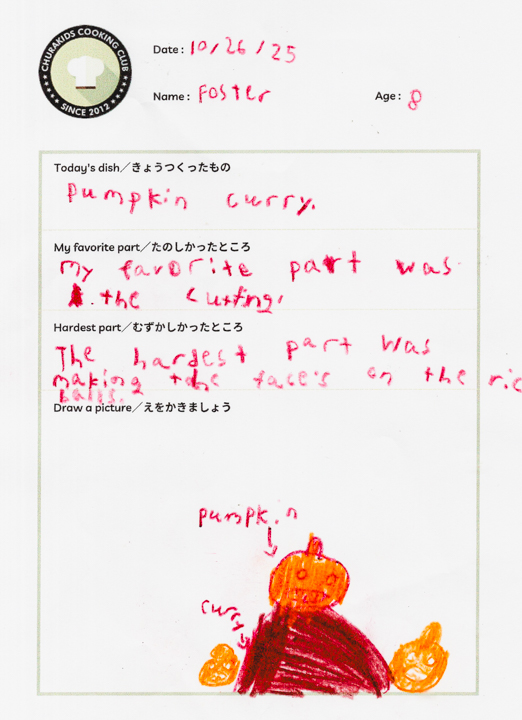 CHURAKIDS COOKING CLUB
SINCE 2012
Date : 10/26/25
Name : Foster
Age : 8
Today's dish／きょうつくったもの
Pumpkin curry.
My favorite part／たのしかったところ
my favorite part was
the cutting.
Hardest part／むずかしかったところ
The hardest part was
making the face's on the ric
balls.
Draw a picture／えをかきましょう
pumpkin
curry